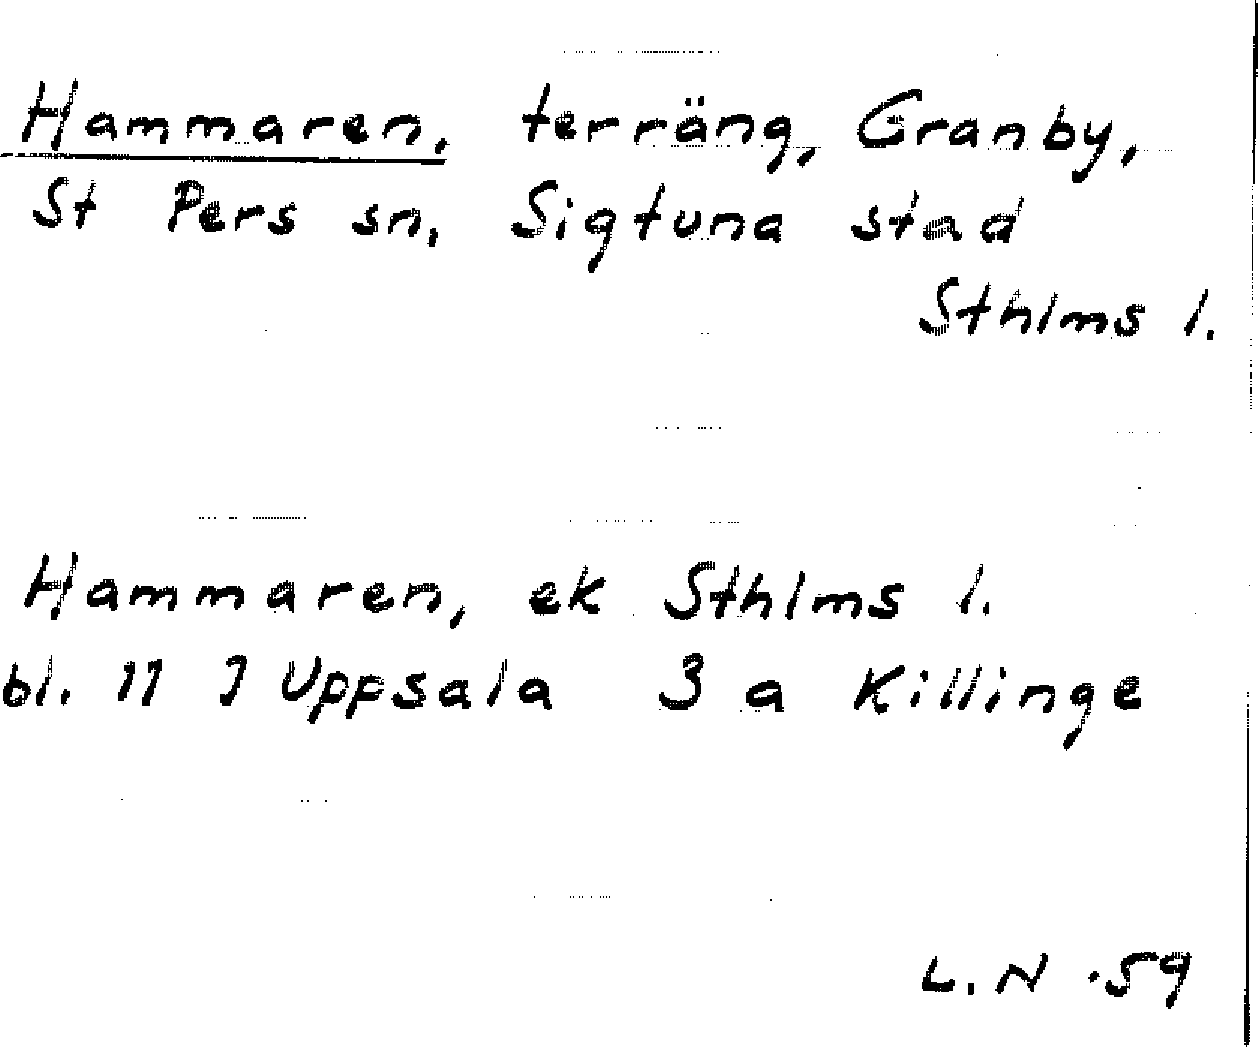 Hammaren, terräng, Granby,
St Pers sn, Sigtuna stad
Sthlms l.
Hammaren, ek Sthlms l.
bl. 11 I Uppsala 3 a Killinge
L.N -59